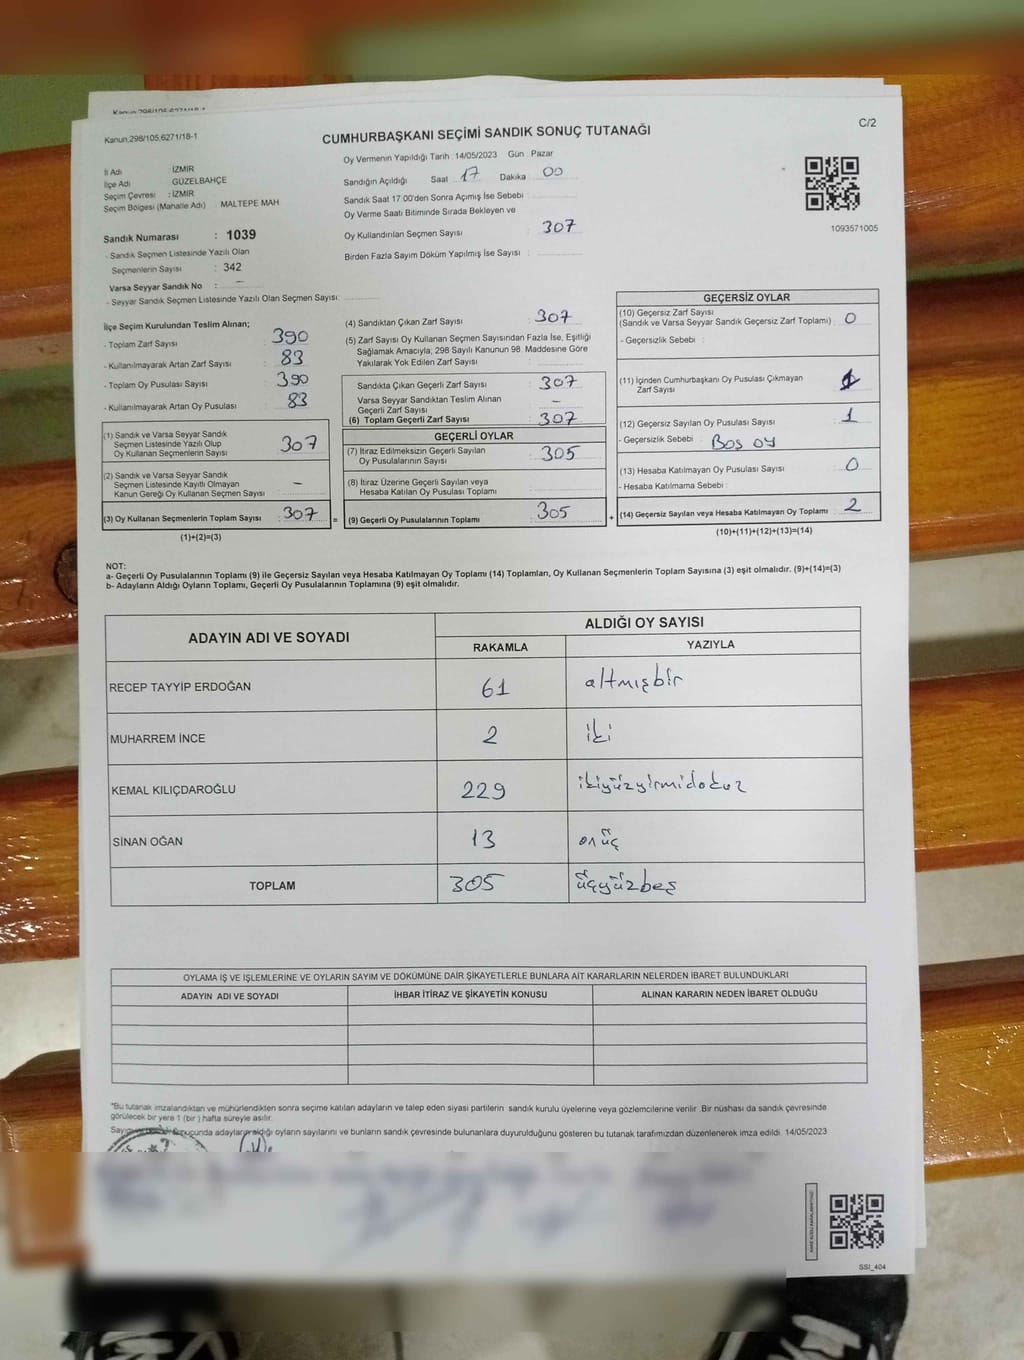 Kanun;298/105,6271/18-1
CUMHURBAŞKANI SEÇİMİ SANDIK SONUÇ TUTANAĞI
C/2
Oy Vermenin Yapıldığı Tarih : 14/05/2023 Gün : Pazar
İl Adı : İZMİR
İlçe Adı : GÜZELBAHÇE
Seçim Çevresi : İZMİR
Seçim Bölgesi (Mahalle Adı) : MALTEPE MAH
Sandığın Açıldığı Saat : 17 Dakika : 00
Sandık Saat 17:00'den Sonra Açımış İse Sebebi :
Oy Verme Saati Bitiminde Sırada Bekleyen ve
Oy Kullandırılan Seçmen Sayısı : 307
Birden Fazla Sayım Döküm Yapılmış İse Sayısı :
1093571005
Sandık Numarası : 1039
- Sandık Seçmen Listesinde Yazılı Olan
Seçmenlerin Sayısı : 342
Varsa Seyyar Sandık No : –
- Seyyar Sandık Seçmen Listesinde Yazılı Olan Seçmen Sayısı:
İlçe Seçim Kurulundan Teslim Alınan;
- Toplam Zarf Sayısı : 390
- Kullanılmayarak Artan Zarf Sayısı : 83
- Toplam Oy Pusulası Sayısı : 390
- Kullanılmayarak Artan Oy Pusulası : 83
(1) Sandık ve Varsa Seyyar Sandık
Seçmen Listesinde Yazılı Olup
Oy Kullanan Seçmenlerin Sayısı : 307
(2) Sandık ve Varsa Seyyar Sandık
Seçmen Listesinde Kayıtlı Olmayan
Kanun Gereği Oy Kullanan Seçmen Sayısı : –
(3) Oy Kullanan Seçmenlerin Toplam Sayısı : 307
(1)+(2)=(3)
(4) Sandıktan Çıkan Zarf Sayısı : 307
(5) Zarf Sayısı Oy Kullanan Seçmen Sayısından Fazla İse, Eşitliği
Sağlamak Amacıyla; 298 Sayılı Kanunun 98. Maddesine Göre
Yakılarak Yok Edilen Zarf Sayısı :
Sandıkta Çıkan Geçerli Zarf Sayısı : 307
Varsa Seyyar Sandıktan Teslim Alınan
Geçerli Zarf Sayısı : –
(6) Toplam Geçerli Zarf Sayısı : 307
GEÇERLİ OYLAR
(7) İtiraz Edilmeksizin Geçerli Sayılan
Oy Pusulalarının Sayısı : 305
(8) İtiraz Üzerine Geçerli Sayılan veya
Hesaba Katılan Oy Pusulası Toplamı :
= (9) Geçerli Oy Pusulalarının Toplamı : 305
GEÇERSİZ OYLAR
(10) Geçersiz Zarf Sayısı
(Sandık ve Varsa Seyyar Sandık Geçersiz Zarf Toplamı) : 0
- Geçersizlik Sebebi :
(11) İçinden Cumhurbaşkanı Oy Pusulası Çıkmayan
Zarf Sayısı : 1
(12) Geçersiz Sayılan Oy Pusulası Sayısı : 1
- Geçersizlik Sebebi : Boş oy
(13) Hesaba Katılmayan Oy Pusulası Sayısı : 0
- Hesaba Katılmama Sebebi :
+ (14) Geçersiz Sayılan veya Hesaba Katılmayan Oy Toplamı : 2
(10)+(11)+(12)+(13)=(14)
NOT:
a- Geçerli Oy Pusulalarının Toplamı (9) ile Geçersiz Sayılan veya Hesaba Katılmayan Oy Toplamı (14) Toplamları, Oy Kullanan Seçmenlerin Toplam Sayısına (3) eşit olmalıdır. (9)+(14)=(3)
b- Adayların Aldığı Oyların Toplamı, Geçerli Oy Pusulalarının Toplamına (9) eşit olmalıdır.
ADAYIN ADI VE SOYADI
ALDIĞI OY SAYISI
RAKAMLA YAZIYLA
RECEP TAYYİP ERDOĞAN 61 altmışbir
MUHARREM İNCE 2 iki
KEMAL KILIÇDAROĞLU 229 ikiyüzyirmidokuz
SİNAN OĞAN 13 onüç
TOPLAM 305 üçyüzbeş
OYLAMA İŞ VE İŞLEMLERİNE VE OYLARIN SAYIM VE DÖKÜMÜNE DAİR ŞİKAYETLERLE BUNLARA AİT KARARLARIN NELERDEN İBARET BULUNDUKLARI
ADAYIN ADI VE SOYADI İHBAR İTİRAZ VE ŞİKAYETİN KONUSU ALINAN KARARIN NEDEN İBARET OLDUĞU
*Bu tutanak imzalandıktan ve mühürlendikten sonra seçime katılan adayların ve talep eden siyasi partilerin sandık kurulu üyelerine veya gözlemcilerine verilir. Bir nüshası da sandık çevresinde
görülecek bir yere 1 (bir ) hafta süreyle asılır.
adayların aldığı oyların sayılarını ve bunların sandık çevresinde bulunanlara duyurulduğunu gösteren bu tutanak tarafımızdan düzenlenerek imza edildi. 14/05/2023
SSİ_404